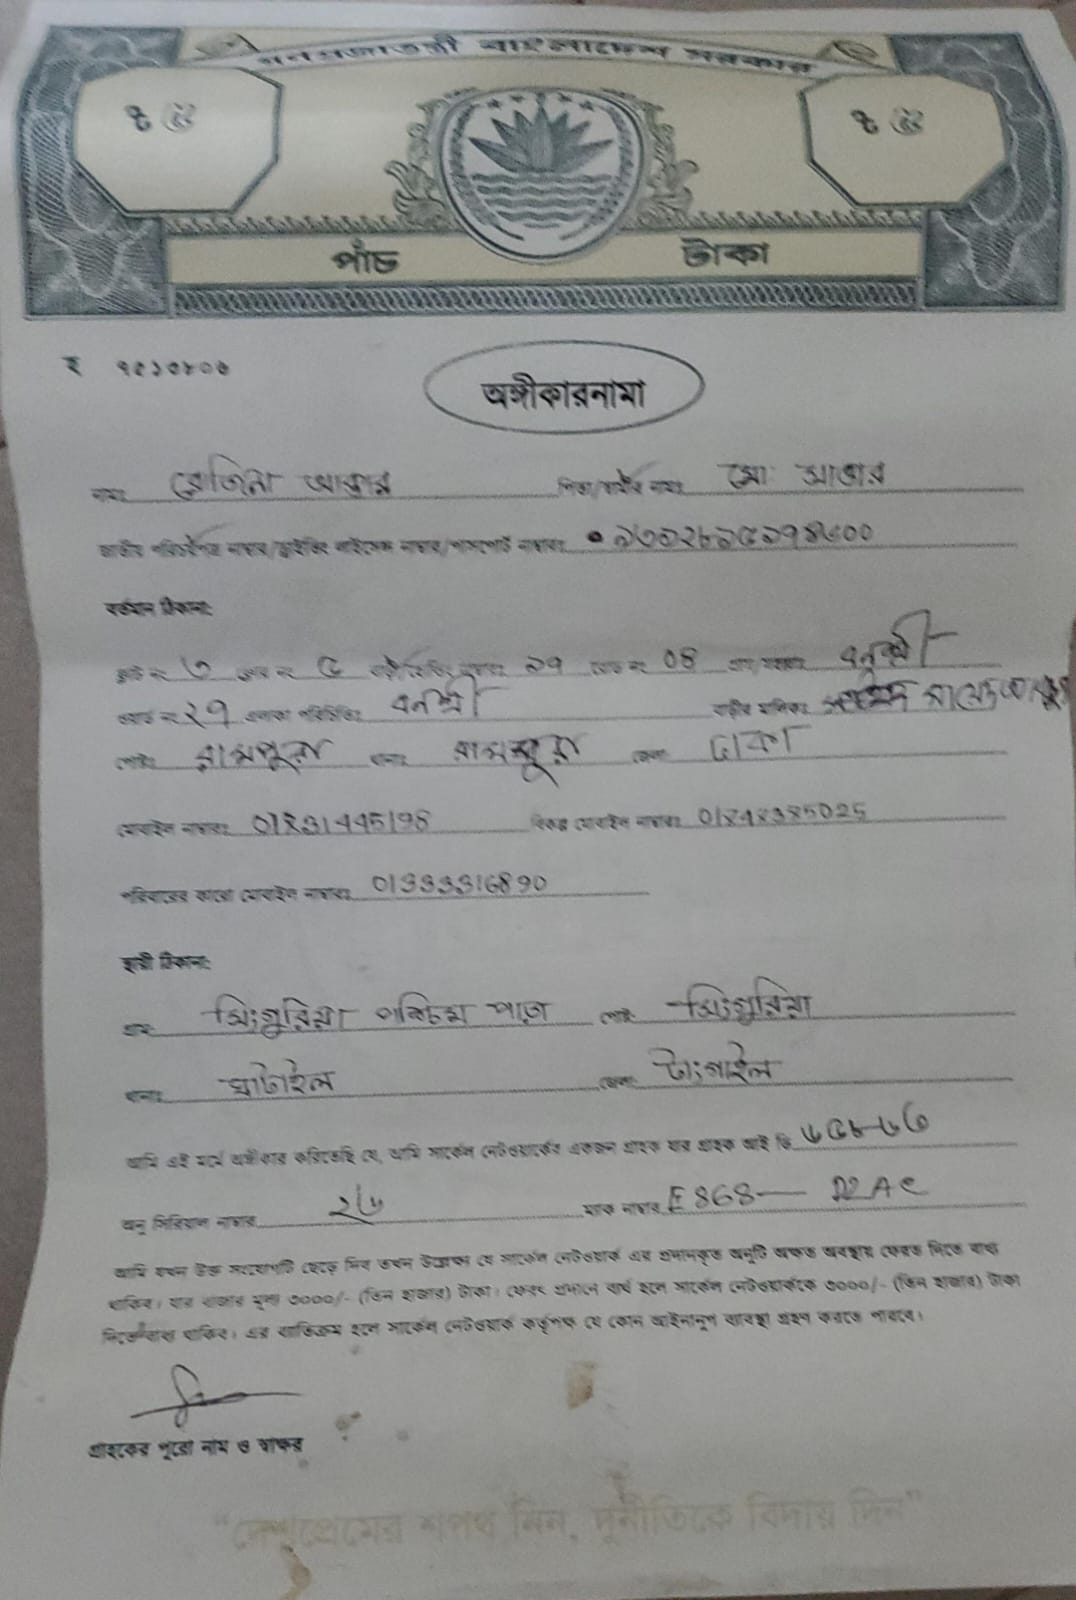 গনপ্রজাতন্ত্রী বাংলাদেশ সরকার
৳ ৫ ৳ ৫
পাঁচ টাকা
ঽ ৭৫১৩৮০৬
অঙ্গীকারনামা
নামঃ রোজিনা আক্তার পিতা/স্বামীর নামঃ মো: সাত্তার
জাতীয় পরিচয়পত্র নাম্বার/ড্রাইভিং লাইসেন্স নাম্বার/পাসপোর্ট নাম্বারঃ
বর্তমান ঠিকানা:
ফ্লাট নং ৩ ফ্লোর নং ৫ বাড়ী/বিল্ডিং নাম্বারঃ ১৭ রোড নং 08 গ্রাম/মহল্লাঃ বনশ্রী
ওয়ার্ড নং ২৭ এলাকা পরিচিতিঃ বনশ্রী বাড়ীর মালিকঃ
পোষ্টঃ রামপুরা থানাঃ রামপুরা জেলাঃ ঢাকা
মোবাইল নাম্বারঃ 01831445198 বিকল্প মোবাইল নাম্বারঃ 01848385025
পরিবারের কারো মোবাইল নাম্বারঃ 01333316890
স্থায়ী ঠিকানা:
গ্রামঃ সিংগুরিয়া পশ্চিম পাড়া পোষ্টঃ সিংগুরিয়া
থানাঃ ঘাটাইল জেলাঃ টাংগাইল
আমি এই মর্মে অঙ্গীকার করিতেছি যে, আমি সার্কেল নেটওয়ার্কের একজন গ্রাহক যার গ্রাহক আই ডি ৬৫৮৬৩
অনু সিরিয়াল নাম্বার ২৬ ম্যাক নাম্বার E868— D2AC
আমি যখন উক্ত সংযোগটি ছেড়ে দিব তখন উল্লেক্ষ্য যে সার্কেল নেটওয়ার্ক এর প্রদানকৃত অনুটি অক্ষত অবস্থায় ফেরত দিতে বাধ্য
থাকিব। যার বাজার মূল্য ৩০০০/- (তিন হাজার) টাকা। ফেরৎ প্রদানে ব্যর্থ হলে সার্কেল নেটওয়ার্ককে ৩০০০/- (তিন হাজার) টাকা
দিতে বাধ্য থাকিব। এর ব্যতিক্রম হলে সার্কেল নেটওয়ার্ক কর্তৃপক্ষ যে কোন আইনানুগ ব্যবস্থা গ্রহণ করতে পারবে।
গ্রাহকের পুরো নাম ও স্বাক্ষর
“দেশপ্রেমের শপথ নিন, দুর্নীতিকে বিদায় দিন”